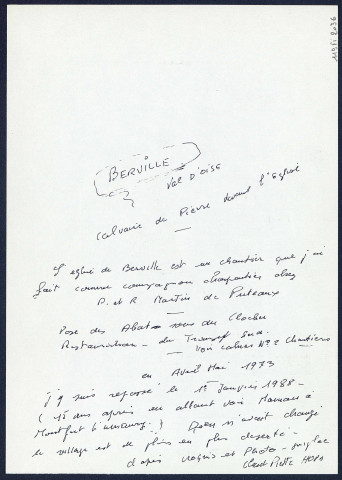 BERVILLE
Val D'OISE
Calvaire de Pierre devant l'Eglise
L'eglise de Berville est un chantier que j'ai
fait comme compagnon charpentier chez
P. et R Martin de Puteaux
Pose des Abat sons du Clocher
Restauration - du Transept Sud.
Voir cahier N° 2 Chantiers
en Avril Mai 1973
J'y suis repassé le 1er Janvier 1988 -
(15 ans après en allant voir Maman à
Montfort l'amaury.) Rien n'avait changé
le village est de plus en plus deserté -
d'après croquis et Photo -